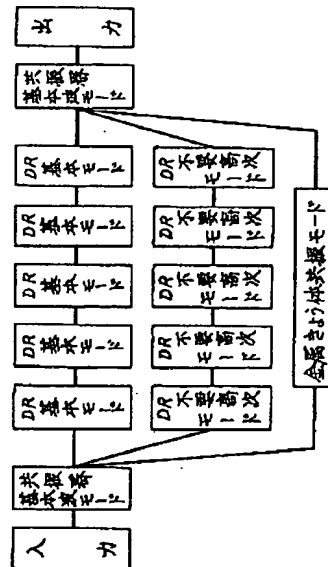 入力
共振器
基本波モード
DR
基本モード
DR
基本モード
DR
基本モード
DR
基本モード
DR
基本モード
共振器
基本波モード
出力
DR不要高次
モード
DR不要高次
モード
DR不要高次
モード
DR不要高次
モード
DR不要高次
モード
金属きょう体共振モード